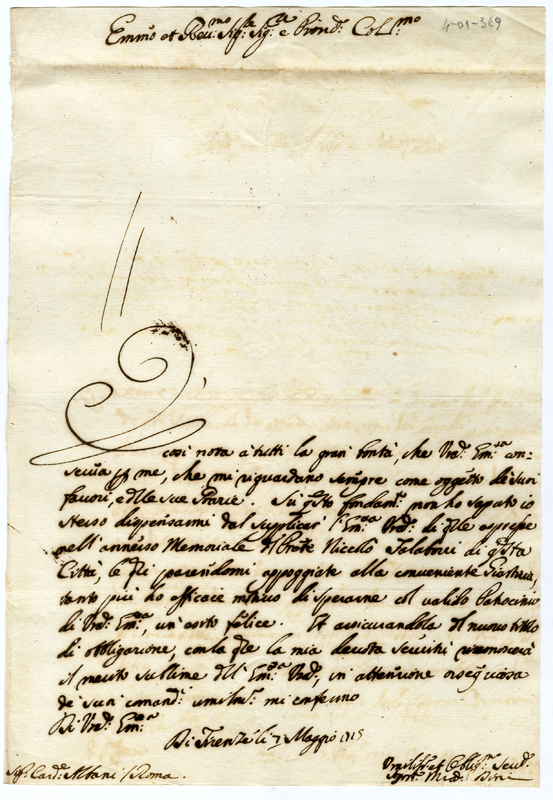 4-01-369
Emmo et Reu:mo Sig:re Sig:re e Pron: Col:mo
È così nota à tutti la gran bontà, che Vra: Em:za con-
serua per me, che mi riguardano sempre come oggetto de' suoi
fauori, e delle sue Grazie. Su q:sto fondam:to non ho saputo io
stesso dispensarmi dal supplicar l'Em:za Vra: di q:lle espresse
nell'annesso Memoriale del Prete Niccolò di q:sta
Città, le q:li parendomi appoggiate alla conueniente Giustizia,
tanto più ho efficace motiuo di sperarne col valido Patrocinio
di Vra: Em:za, un' esito felice. Et assicurandola del nuouo titolo
di obligazione, con la q:le la mia deuota seruitù riconoscerà
il merito sublime dell' Em:za Vra:, in attenzione ossequiosa
de suoi comandi: umilm:te mi confermo
Di Vra: Em:za
Di Firenze li 7 Maggio 1715
Sig: Card: Albani / Roma.
Vmiliss: et Oblig: Seru:
Dini